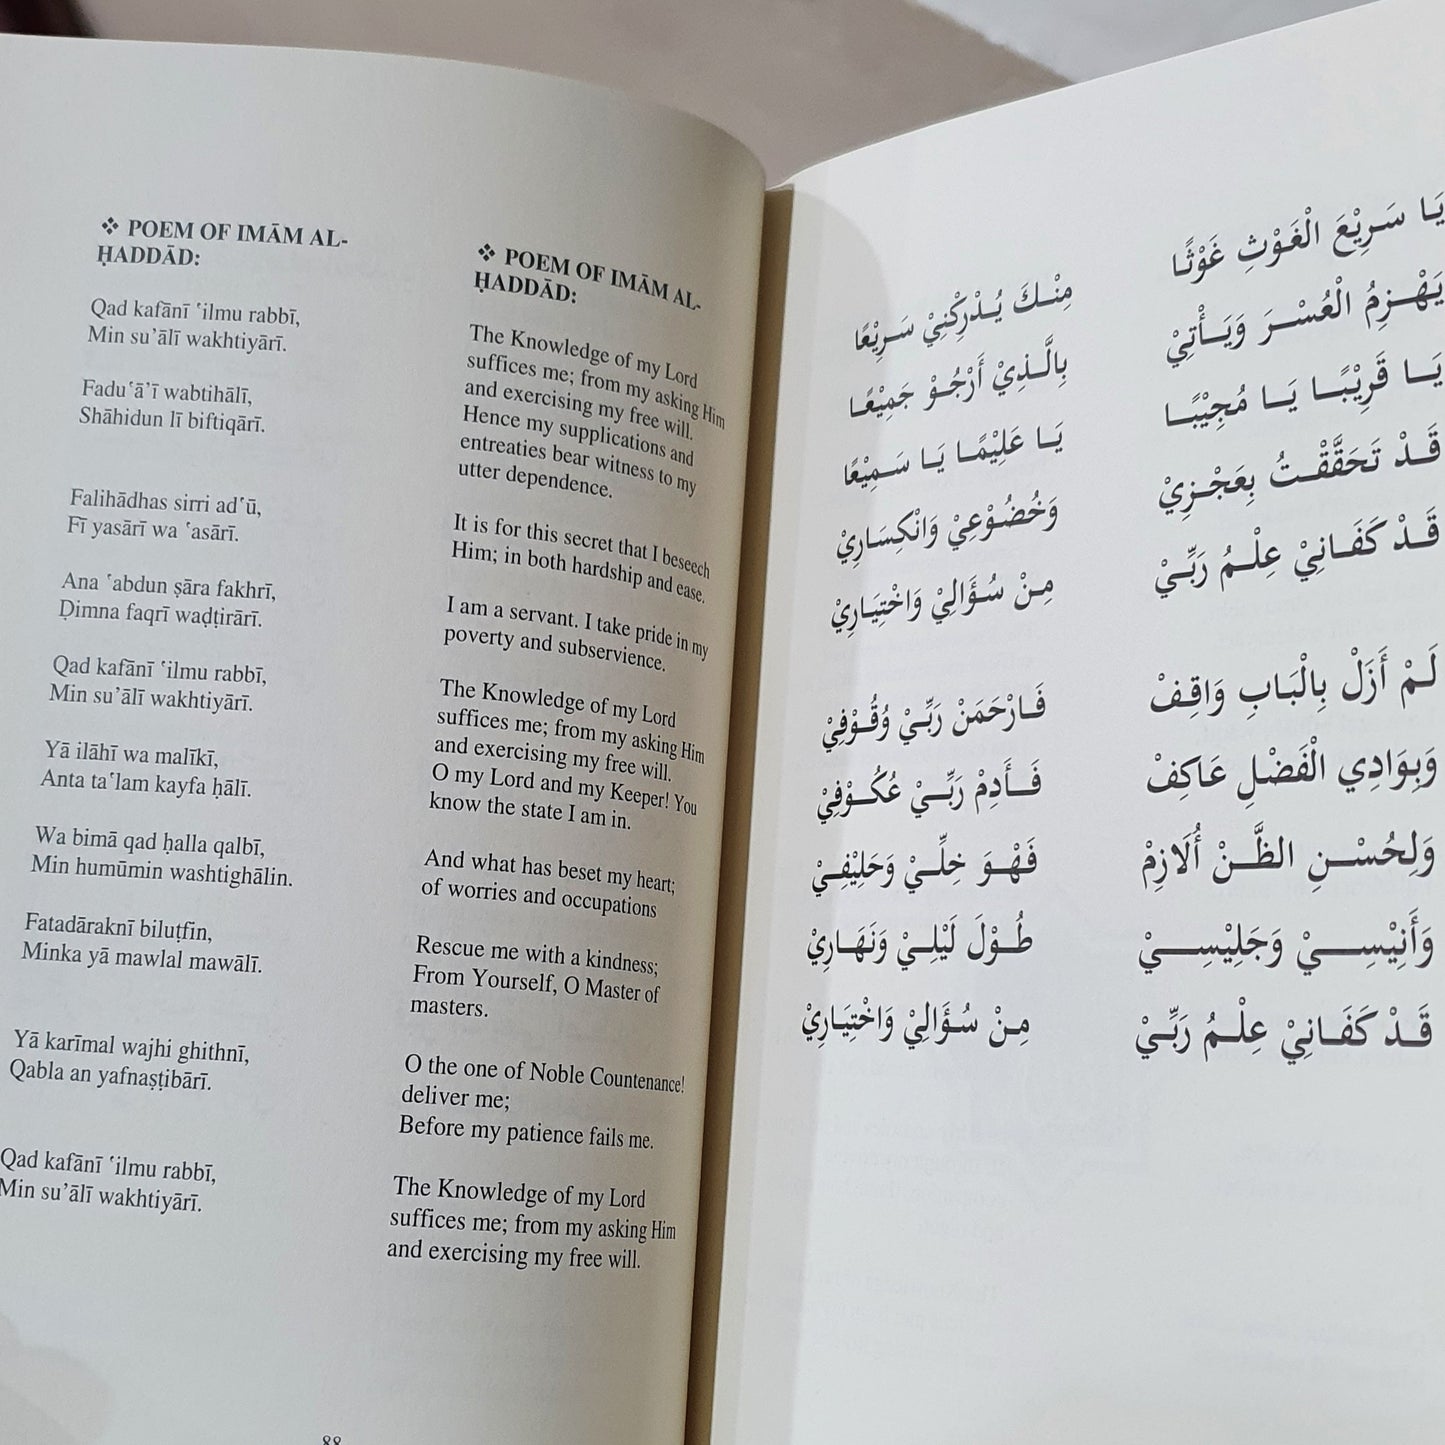 ❖ POEM OF IMĀM AL-
ḤADDĀD:
Qad kafānī ʿilmu rabbī,
Min su’ālī wakhtiyārī.
Faduʿā’ī wabtihālī,
Shāhidun lī biftiqārī.
Falihādhas sirri adʿū,
Fī yasārī wa ʿasārī.
Ana ʿabdun ṣāra fakhrī,
Ḍimna faqrī waḍṭirārī.
Qad kafānī ʿilmu rabbī,
Min su’ālī wakhtiyārī.
Yā ilāhī wa malīkī,
Anta taʿlam kayfa ḥālī.
Wa bimā qad ḥalla qalbī,
Min humūmin washtighālin.
Fatadāraknī biluṭfin,
Minka yā mawlal mawālī.
Yā karīmal wajhi ghithnī,
Qabla an yafnaṣṭibārī.
Qad kafānī ʿilmu rabbī,
Min su’ālī wakhtiyārī.
❖ POEM OF IMĀM AL-
ḤADDĀD:
The Knowledge of my Lord
suffices me; from my asking Him
and exercising my free will.
Hence my supplications and
entreaties bear witness to my
utter dependence.
It is for this secret that I beseech
Him; in both hardship and ease.
I am a servant. I take pride in my
poverty and subservience.
The Knowledge of my Lord
suffices me; from my asking Him
and exercising my free will.
O my Lord and my Keeper! You
know the state I am in.
And what has beset my heart;
of worries and occupations
Rescue me with a kindness;
From Yourself, O Master of
masters.
O the one of Noble Countenance!
deliver me;
Before my patience fails me.
The Knowledge of my Lord
suffices me; from my asking Him
and exercising my free will.
88
يَا سَرِيْعَ الْغَوْثِ غَوْثًا مِنْكَ يُدْرِكْنِيْ سَرِيْعًا
يَهْزِمُ الْعُسْرَ وَيَأْتِيْ بِالَّذِيْ أَرْجُوْ جَمِيْعًا
يَا قَرِيْبًا يَا مُجِيْبًا يَا عَلِيْمًا يَا سَمِيْعًا
قَدْ تَحَقَّقْتُ بِعَجْزِيْ وَخُضُوْعِيْ وَانْكِسَارِيْ
قَدْ كَفَانِيْ عِلْمُ رَبِّيْ مِنْ سُؤَالِيْ وَاخْتِيَارِيْ
لَمْ أَزَلْ بِالْبَابِ وَاقِفْ فَارْحَمَنْ رَبِّيْ وُقُوْفِيْ
وَبِوَادِي الْفَضْلِ عَاكِفْ فَأَدِمْ رَبِّيْ عُكُوْفِيْ
وَلِحُسْنِ الظَّنْ أُلَازِمْ فَهْوَ خِلِّيْ وَحَلِيْفِيْ
وَأَنِيْسِيْ وَجَلِيْسِيْ طُوْلَ لَيْلِيْ وَنَهَارِيْ
قَدْ كَفَانِيْ عِلْمُ رَبِّيْ مِنْ سُؤَالِيْ وَاخْتِيَارِيْ